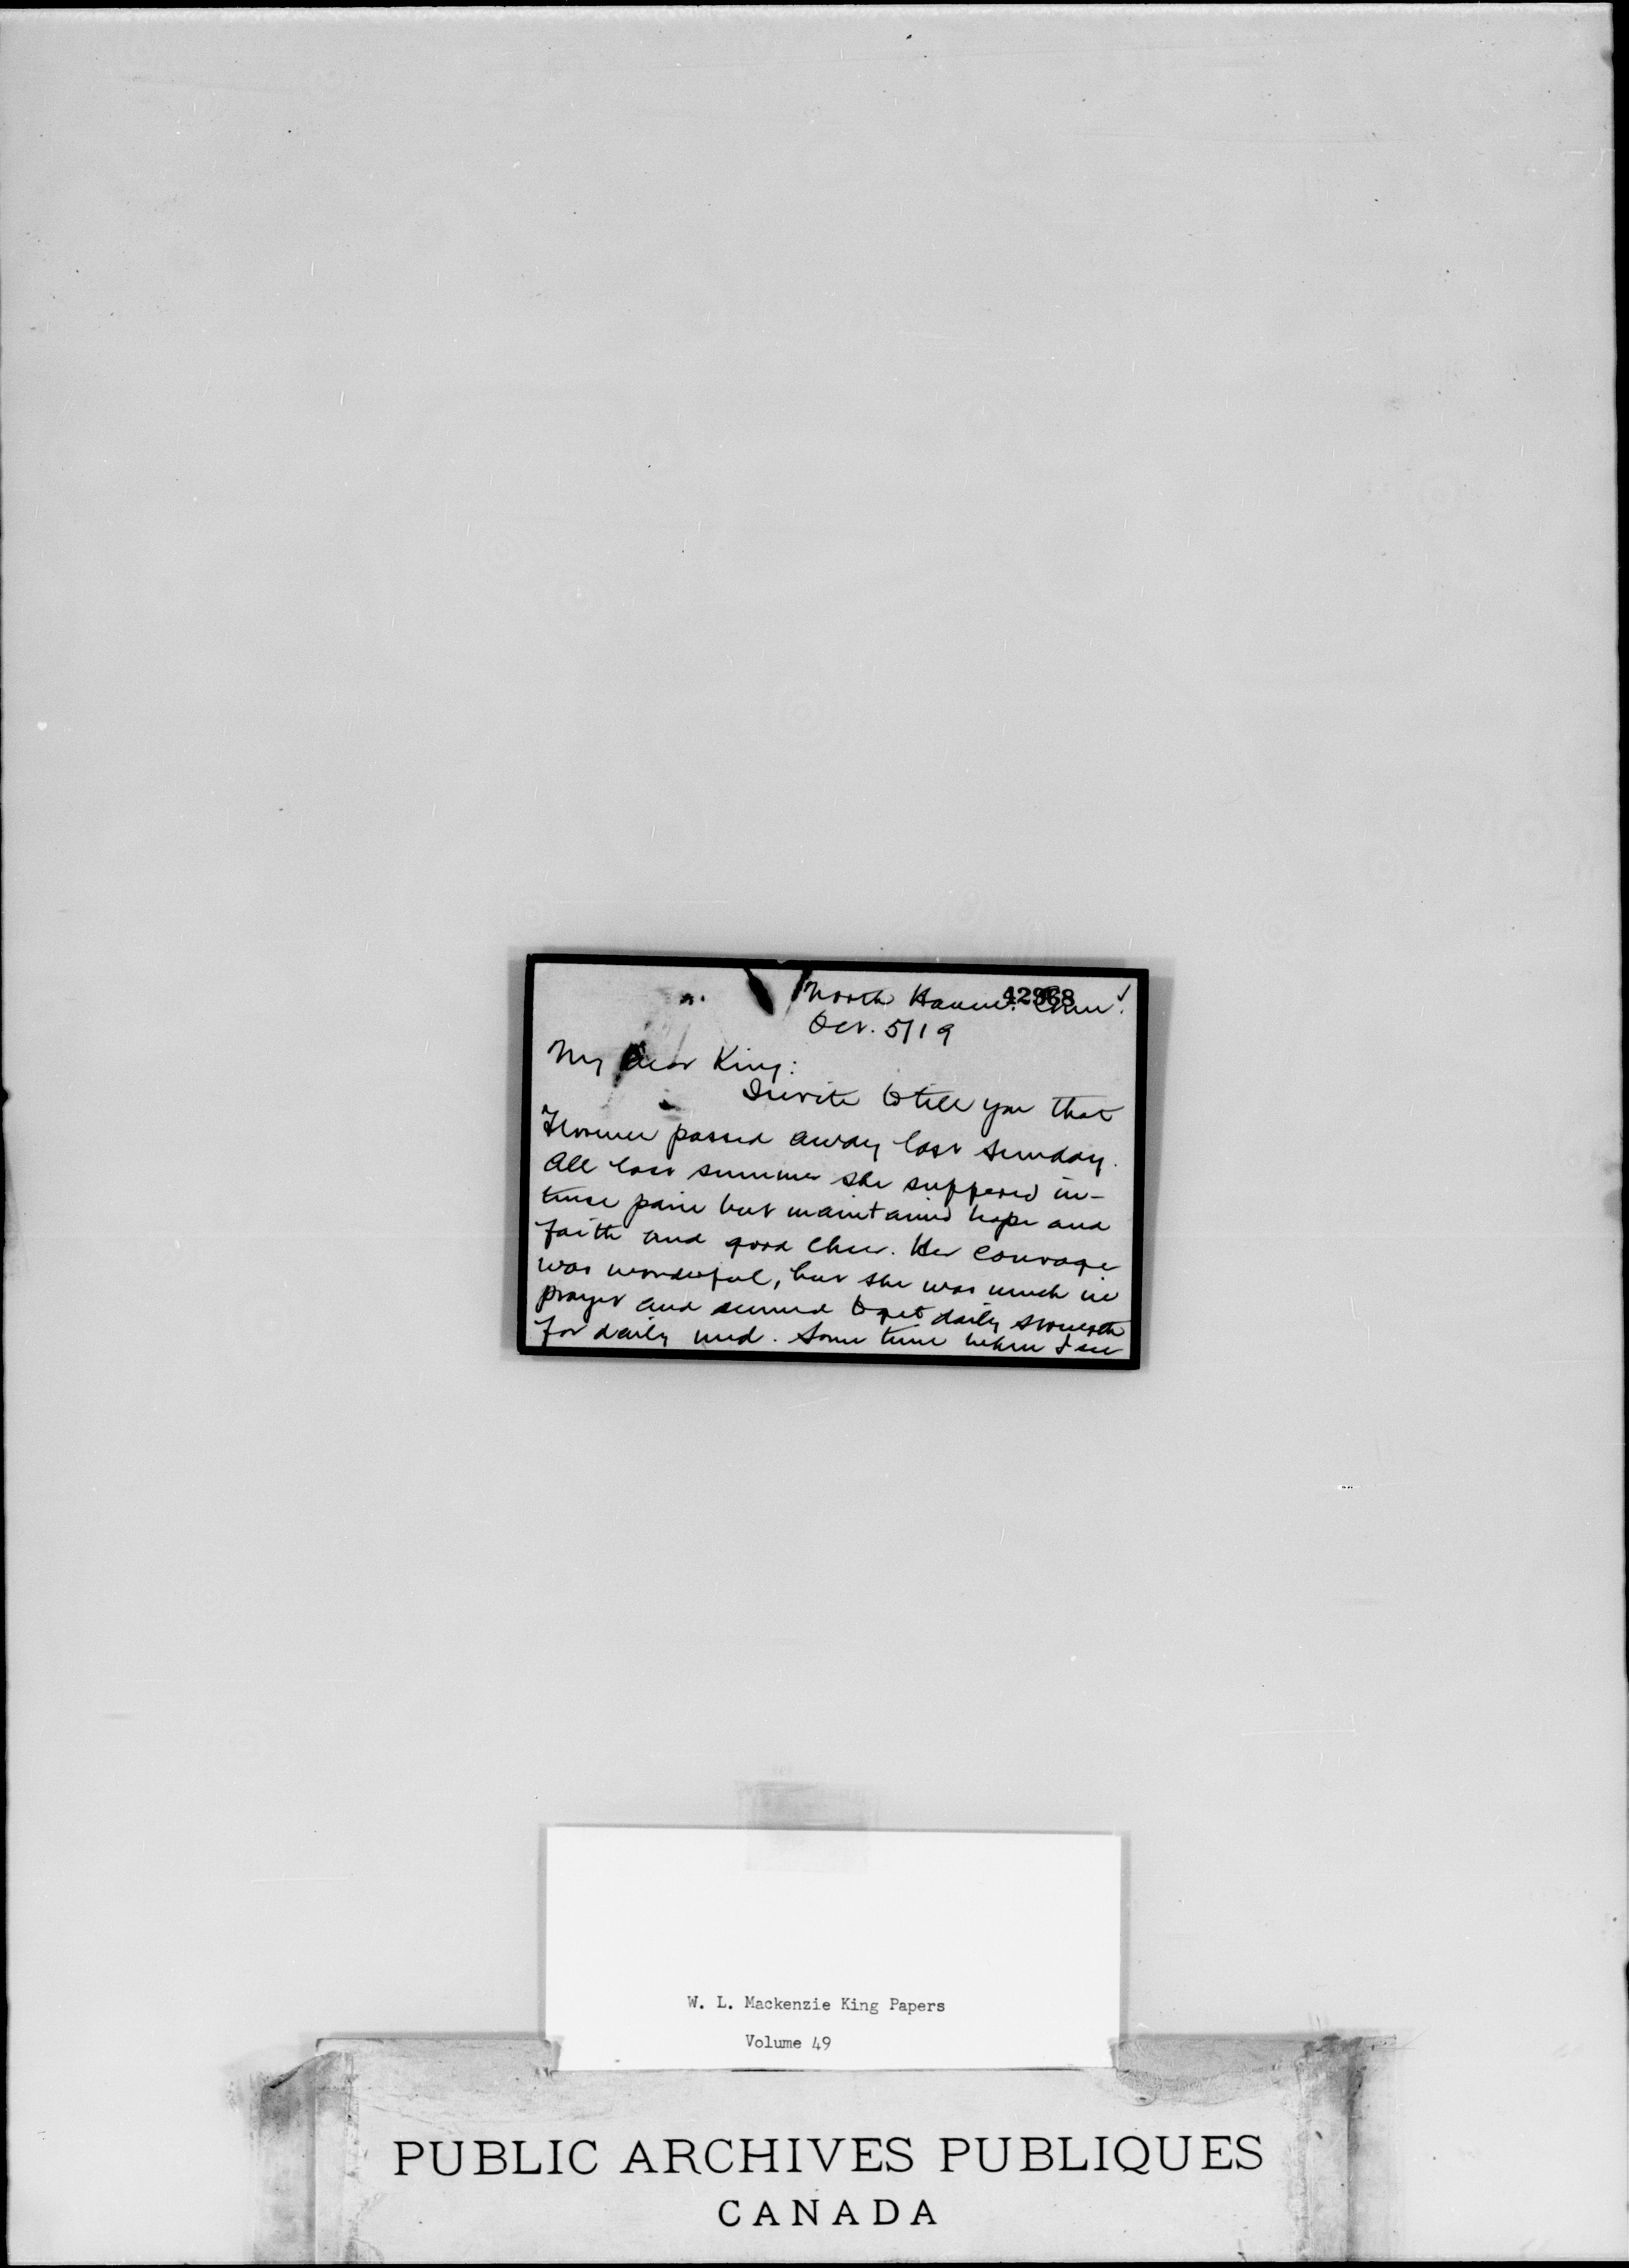 42968
North Haven. Conn.
Oct. 5/19
My dear King:
I write to tell you that
Florence passed away last Sunday.
All last summer she suffered in-
tense pain but maintained hope and
faith and good cheer. Her courage
was wonderful, but she was much in
prayer and seemed to get daily strength
for daily need. Some time when I see
W. L. Mackenzie King Papers
Volume 49
PUBLIC ARCHIVES PUBLIQUES
CANADA